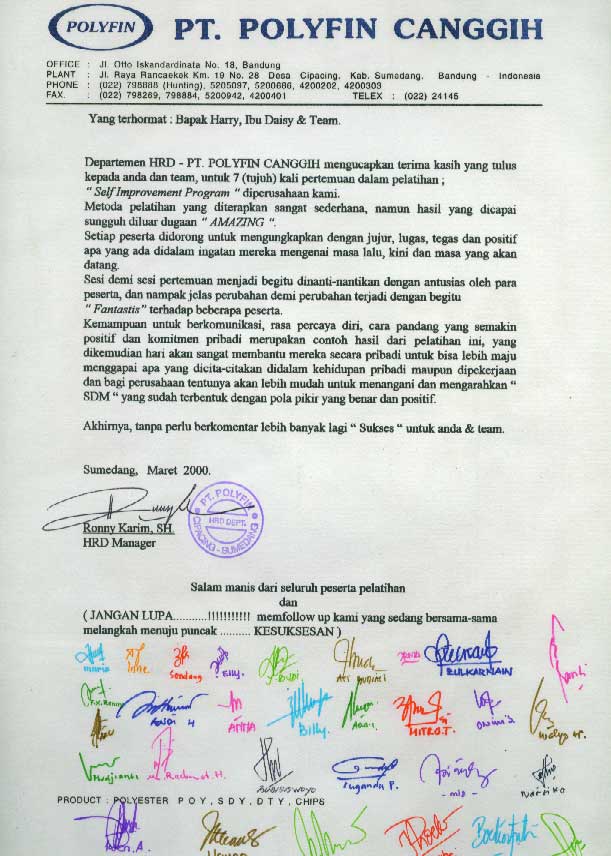 POLYFIN
PT. POLYFIN CANGGIH
OFFICE : Jl. Otto Iskandardinata No. 18, Bandung
PLANT : Jl. Raya Rancaekek Km. 19 No. 28 Desa Cipacing, Kab. Sumedang, Bandung - Indonesia
PHONE : (022) 798888 (Hunting), 5205097, 5200686, 4200202, 4200303
FAX. : (022) 798269, 798884, 5200942, 4200401 TELEX : (022) 24145
Yang terhormat : Bapak Harry, Ibu Daisy & Team.
Departemen HRD - PT. POLYFIN CANGGIH mengucapkan terima kasih yang tulus
kepada anda dan team, untuk 7 (tujuh) kali pertemuan dalam pelatihan ;
" Self Improvement Program " diperusahaan kami.
Metoda pelatihan yang diterapkan sangat sederhana, namun hasil yang dicapai
sungguh diluar dugaan " AMAZING ".
Setiap peserta didorong untuk mengungkapkan dengan jujur, lugas, tegas dan positif
apa yang ada didalam ingatan mereka mengenai masa lalu, kini dan masa yang akan
datang.
Sesi demi sesi pertemuan menjadi begitu dinanti-nantikan dengan antusias oleh para
peserta, dan nampak jelas perubahan demi perubahan terjadi dengan begitu
" Fantastis" terhadap beberapa peserta.
Kemampuan untuk berkomunikasi, rasa percaya diri, cara pandang yang semakin
positif dan komitmen pribadi merupakan contoh hasil dari pelatihan ini, yang
dikemudian hari akan sangat membantu mereka secara pribadi untuk bisa lebih maju
menggapai apa yang dicita-citakan didalam kehidupan pribadi maupun dipekerjaan
dan bagi perusahaan tentunya akan lebih mudah untuk menangani dan mengarahkan "
SDM " yang sudah terbentuk dengan pola pikir yang benar dan positif.
Akhirnya, tanpa perlu berkomentar lebih banyak lagi " Sukses " untuk anda & team.
Sumedang, Maret 2000.
PT. POLYFIN
HRD DEPT.
CIPACING - SUMEDANG
Ronny Karim, SH.
HRD Manager
Salam manis dari seluruh peserta pelatihan
dan
( JANGAN LUPA...........!!!!!!!!!!! memfollow up kami yang sedang bersama-sama
melangkah menuju puncak .......... KESUKSESAN )
maria Sendang Elly. ZULKARNAIN
F.X. Ranny ANITA Billy. HITRO.T.
Suganda P.
PRODUCT : POLYESTER P O Y , S D Y , D T Y , CHIPS